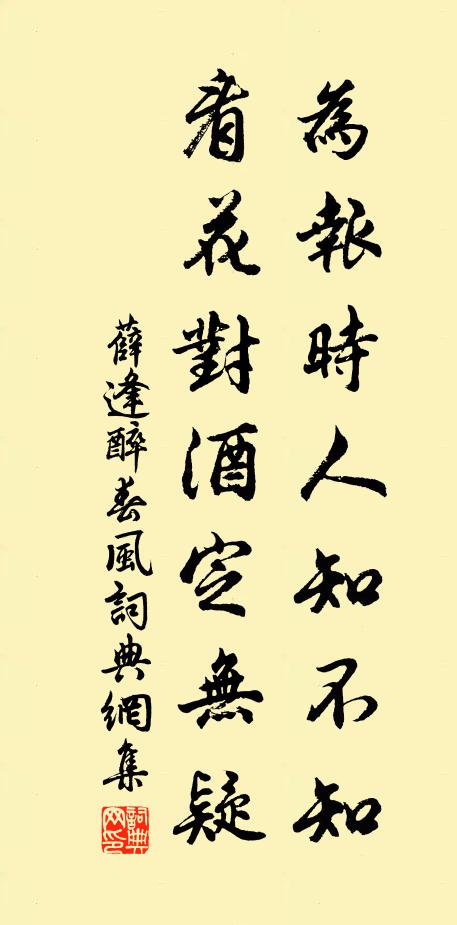 為報時人知不知
看花對酒定無疑
薛逢醉春風詞典網集
詞典網印